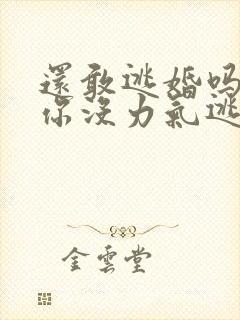 還敢逃婚吗
你沒力氣逃
金雲堂